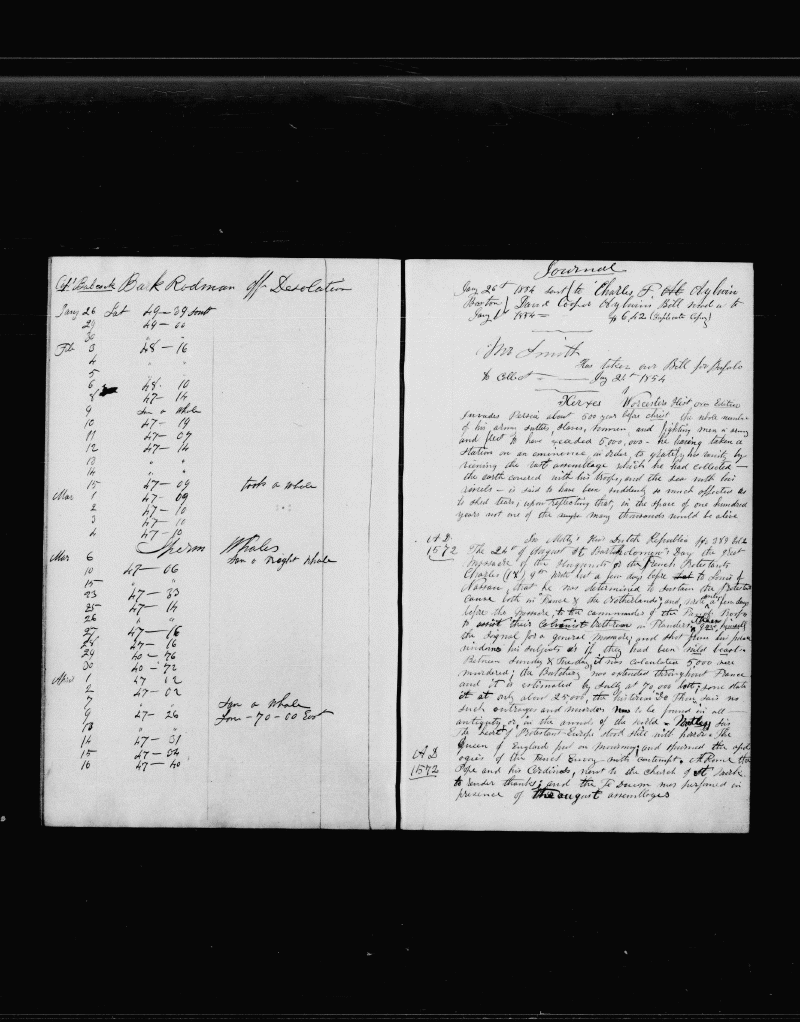 Bark Rodman off Desolation
Jany 26 Lat 49-39 South
29 49-00
30 " "
Feb 3 48-16
4 " "
5
6 48. 10
8 47-14
9 Saw a Whale
10 47-19
11 47-07
12 47-14
13 " "
14 " "
15 47-09 took a whale
Mar 1 47-09
2 47-10
3 47-10
4 47-10
Sperm Whales
Mar 6 Saw a Right Whale
10 47-06
15 " "
23 47-33
25 47-14
26 " "
27 47-16
28 47-16
29 40-76
30 40-72
Apr 1 47 12
2 47-02
7 Saw a Whale
9 47-26 Lon-70-00 East
13
14 47-31
15 47-34
16 47-40
Journal
Jany 26th 1854 sent to Charles F Aylwin
Boston David Cooper Aylwins Bill sent to
Jany 1st 1854 = $6,42 (Duplicate Copy)
Mr Smith
Has taken our Bill for Buffalo
to Collect Jany 24th 1854
Xerxes Worcesters Hist
Invades Persia about 500 year before christ, the whole number
of his army Sutlers, Slaves, women and fighting men a army
and fleet to have exceeded 5000,000 - he having taken a
Station on an eminence in order to gratify his vanity by
viewing the vast assemblage which he had collected -
the earth covered with his troops, and the sea with his
vessels - is said to have been suddenly so much affected as
to shed tears, upon reflecting that, in the space of one hundred
years not one of the many thousands would be alive
AD 1572
In Motley's Rise Dutch Republic pg 389
The 24th of August St Bartholomew's Day the Great
Massacre of the Huguenots or the French Protestants
Charles (IX) 9th wrote but a few days before to Louis of
Nassau, that he was determined to sustain the Protestant
Cause both in France & the Netherlands; and, wrote only a few days
before the Massacre, to the commander of the
to assist their Calvinist bethren in Flanders
the Signal for a general Massacre, and shot from his palace
windows his subjects as if they had been wild beasts -
Between Sunday & Tuesday, it was calculated 5,000 were
murdered; the Butchery was extended throughout France
and it is estimated by Sully at 70,000 both; some state
it at only about 25000, the historian De Thou said no
such outrages and murders was to be found in all
antiquity, or in the annals of the world -
The heart of Protestant Europe stood still with horror - The
Queen of England put on mourning, and spurned the apol
ogies of the French Envoy with contempt. At Rome the
AD 1572
Pope and his Cardinals, went to the church of St Mark
to render thanks; and the Te Deum was performed in
presence of the august assemblages